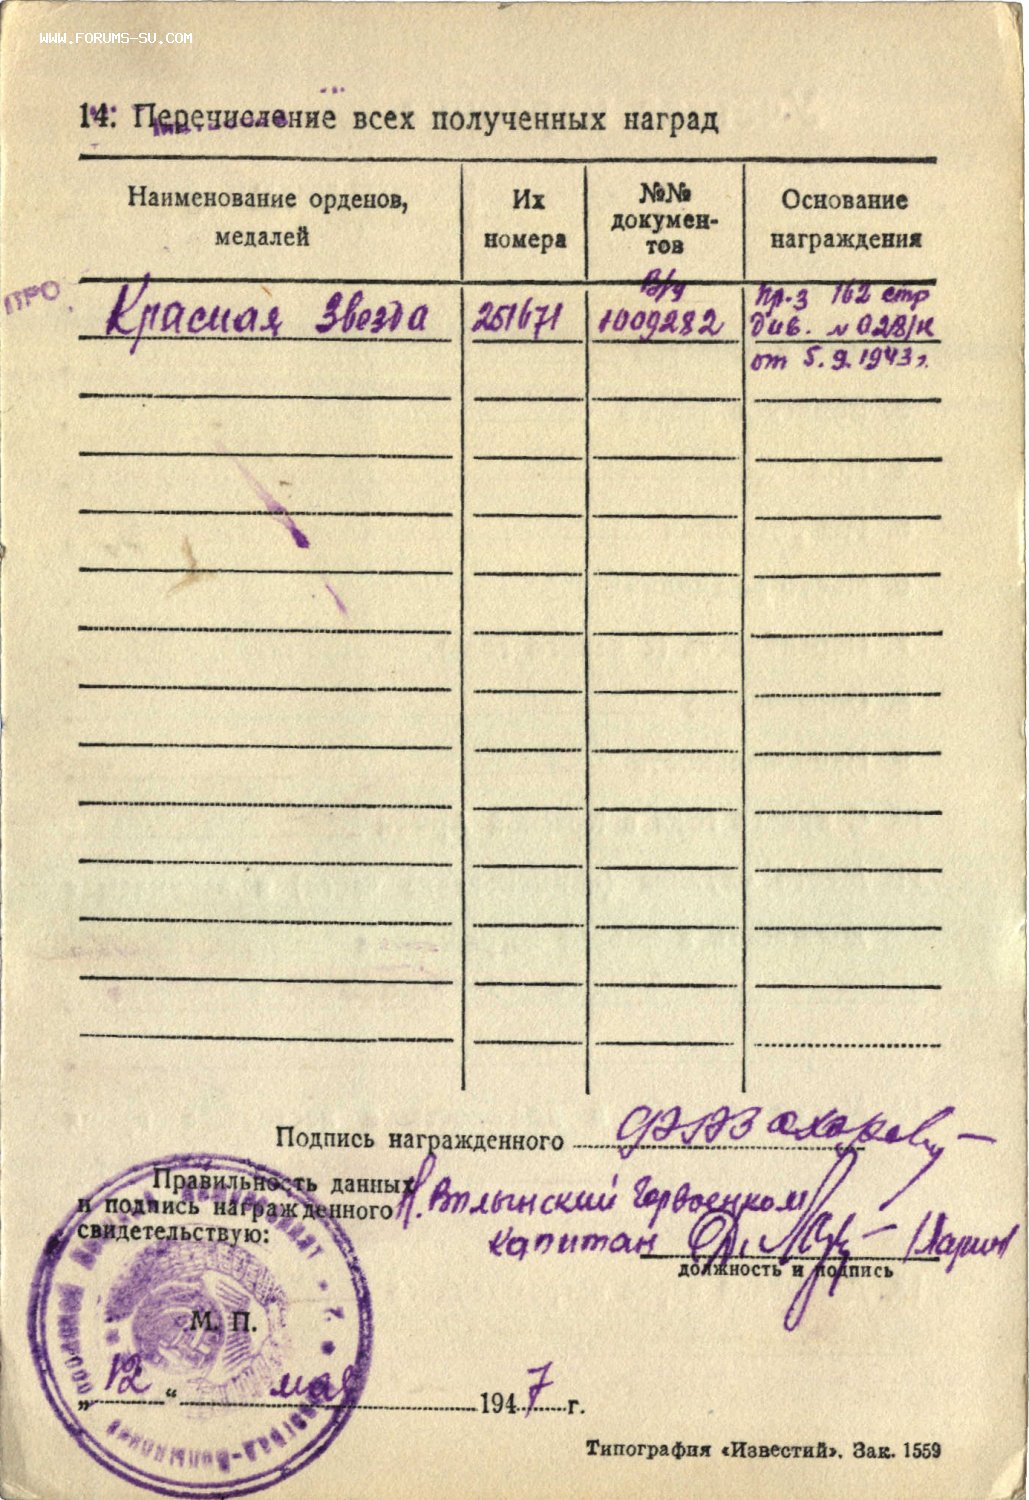 WWW.FORUMS-SU.COM
14. Перечисление всех полученных наград
Наименование орденов, медалей
Их номера
№№ докумен-тов
Основание награждения
ПРО
Красная Звезда
251671
В/у 1009282
Пр-з 162 стр
див. № 028/н
от 5.9.1943 г.
Подпись награжденного
Правильность данных
и подпись награжденного Н. Волынский Горвоенком
свидетельствую:
капитан
должность и подпись
М. П.
„12“ мая 1947 г.
Типография «Известий». Зак. 1559